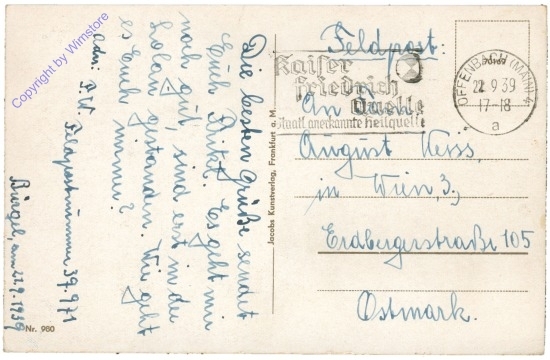 Copyright by Winstore
Adr: F.W. Feldpostnummer 39.971
Bürgel, am 22.9.1939
Die besten Grüße sendet
Euch Pikl. Es geht mir
noch gut, sind erst in der
gestanden. Wie geht
es Euch immer?
Nr. 980
Jacobs Kunstverlag, Frankfurt a. M.
Feldpost:
Kaiser
Friedrich
Quelle
Staatl. anerkannte Heilquelle
OFFENBACH (MAIN) 4
22.9.39
17-18
a
An
August Weiss,
in Wien, 3.,
Erdbergerstraße 105
Ostmark.